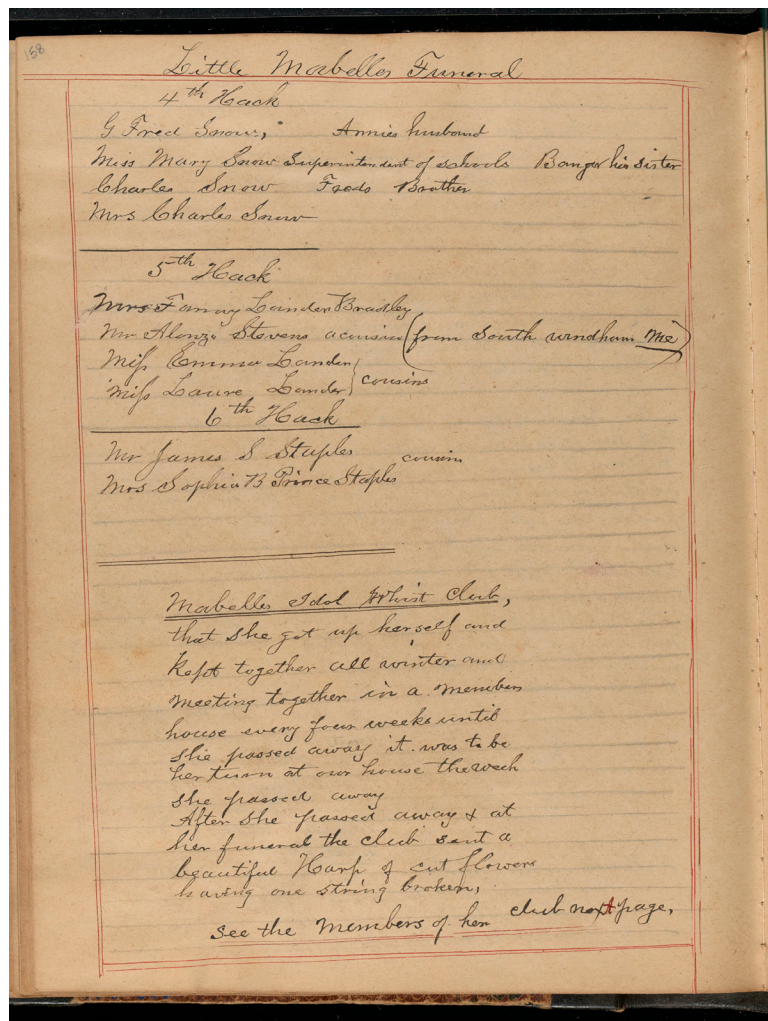 158
Little Mabelles Funeral
4th Hack
G Fred Snow, Annies husband
Miss Mary Snow Superintendent of schools Bangor his sister
Charles Snow Freds Brother
Mrs Charles Snow
5th Hack
Mrs Fanny Lander Bradley
Mr Alonzo Stevens a cousin (from South windham Me)
Miss Emma Lander
Miss Laura Lander } cousins
6th Hack
Mr James S Staples cousin
Mrs Sophia B Prince Staples
Mabelles Idol Whist Club,
that she got up herself and
Kept together all winter and
meeting together in a members
house every four weeks until
she passed away it was to be
her turn at our house the week
she passed away
After she passed away & at
her funeral the club sent a
beautiful Harp of cut flowers
having one string broken,
see the Members of her club next page,